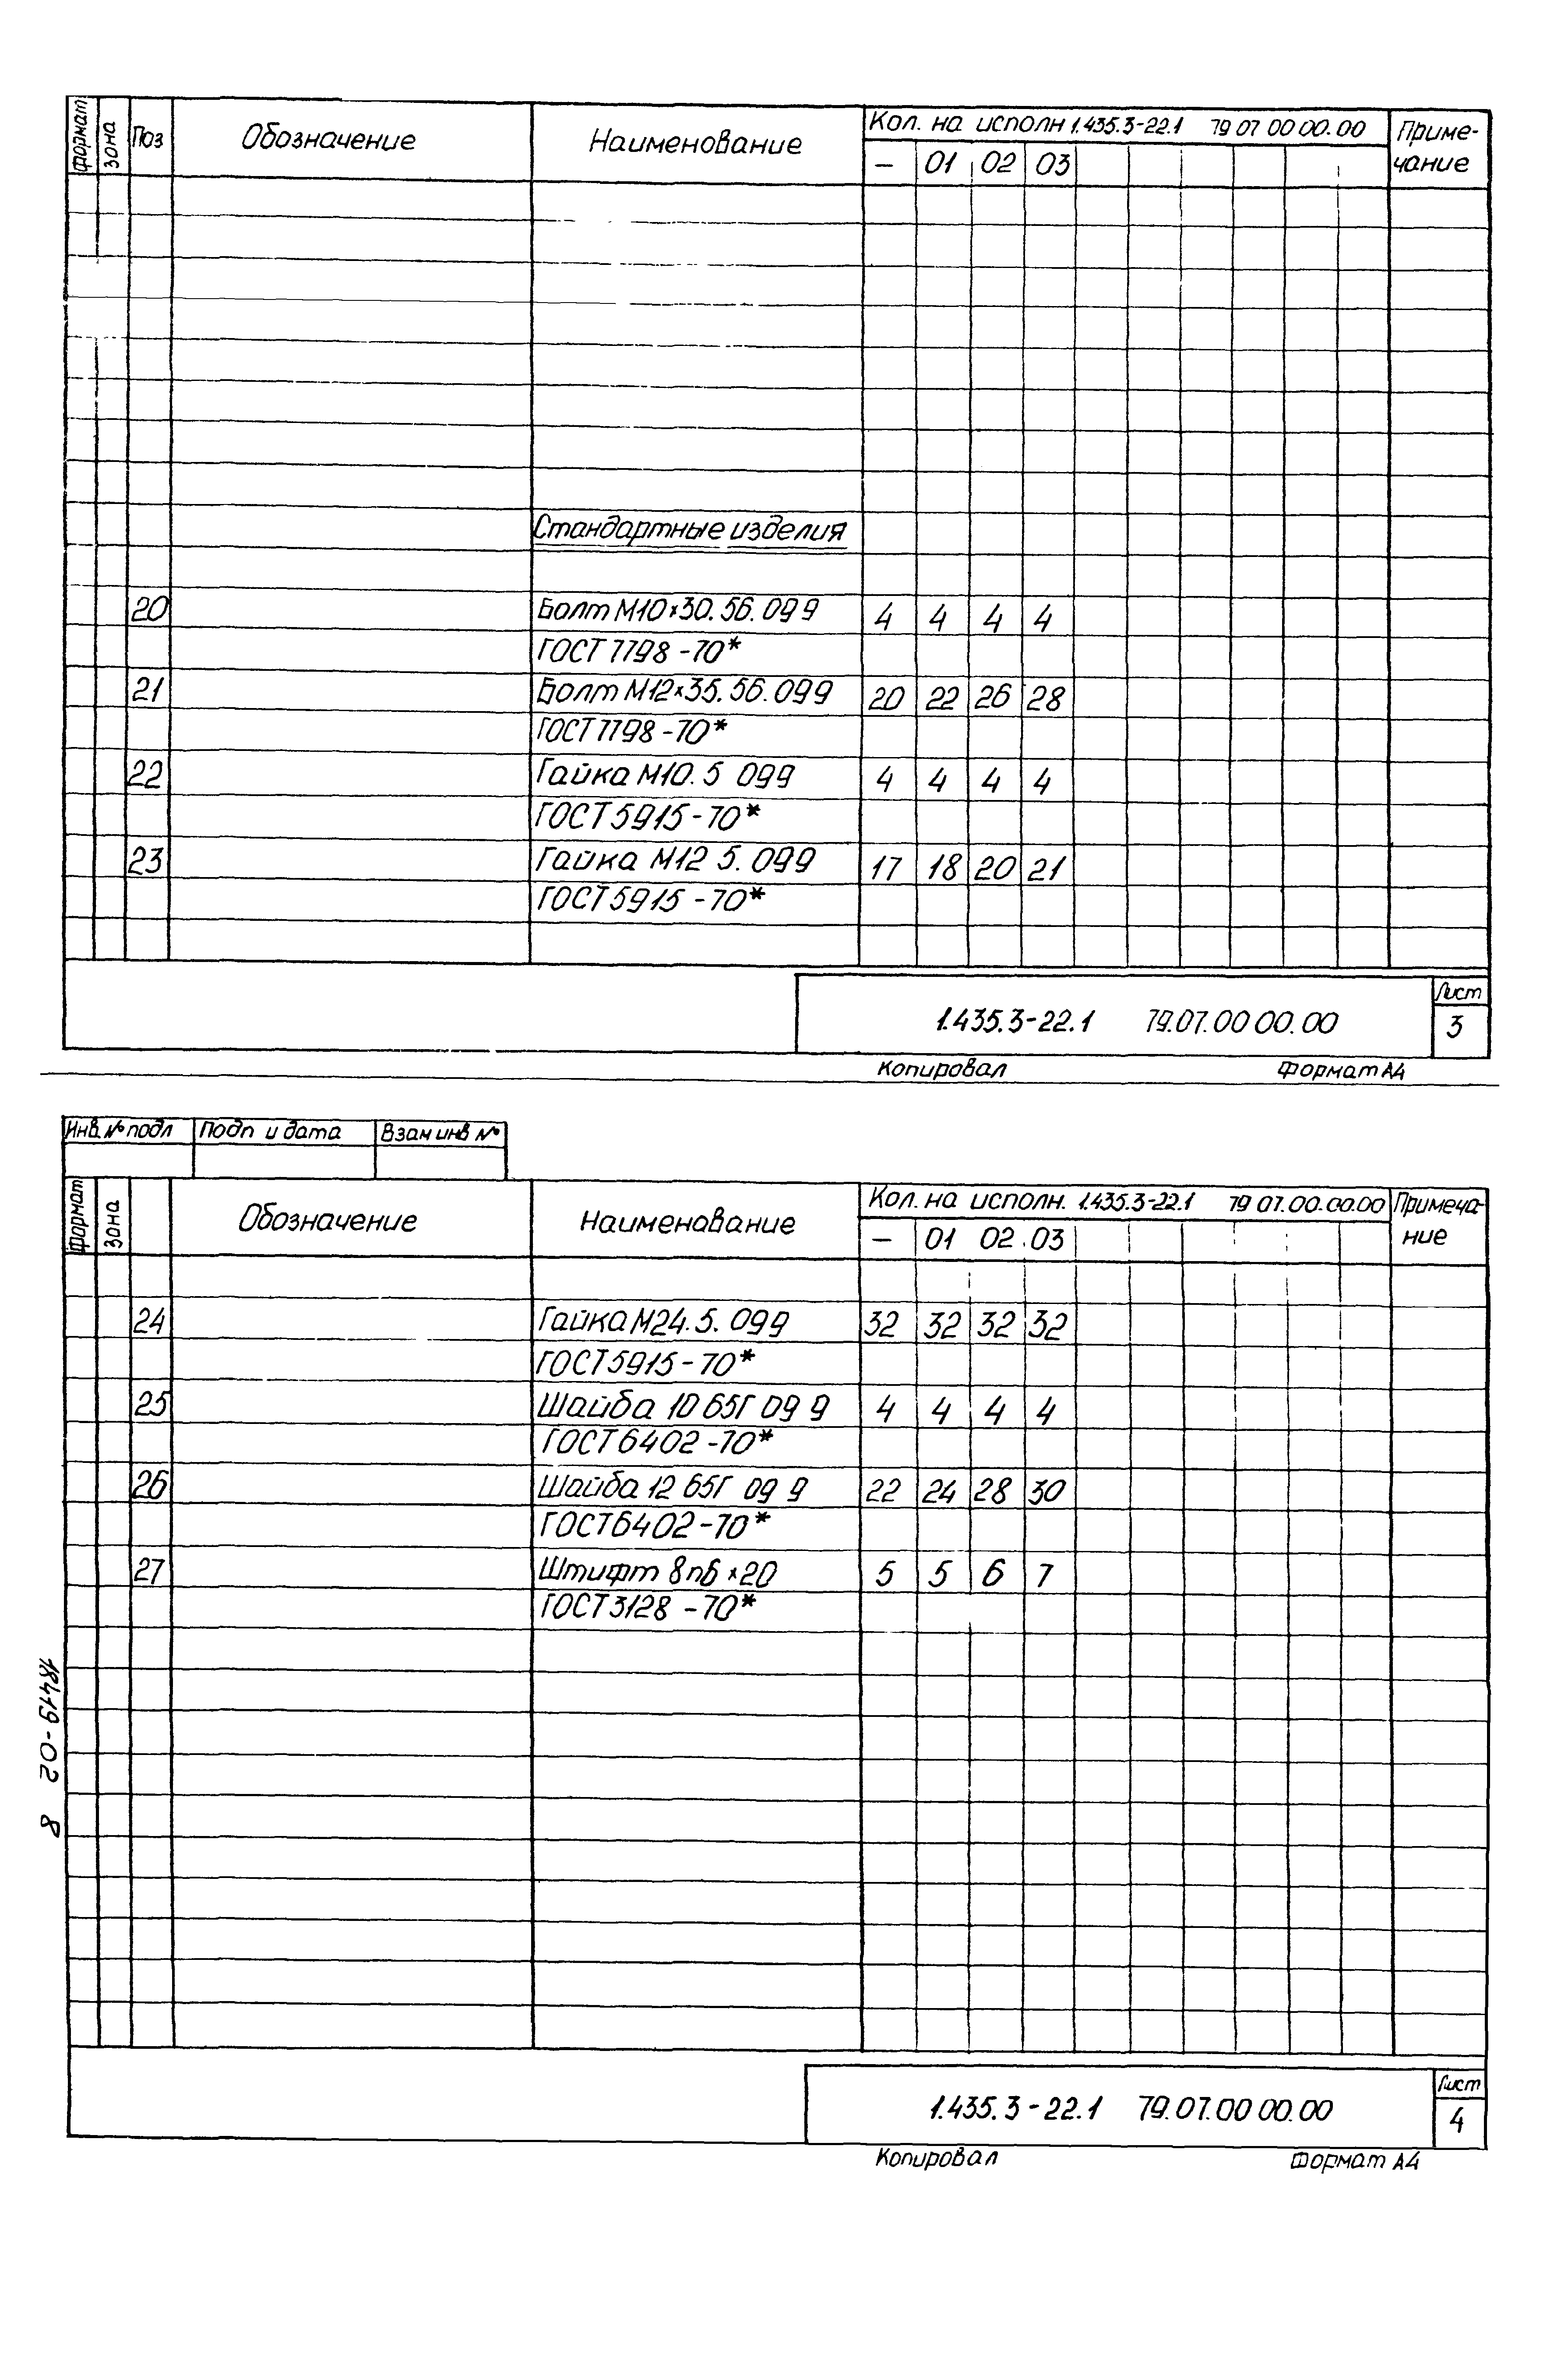 Формат Зона Поз Обозначение Наименование Кол. на исполн 1.435.3-22.1 79 07 00 00.00 Приме-
чание
— 01 02 03
Стандартные изделия
20 Болт М10×30.56.099 4 4 4 4
ГОСТ 7798-70*
21 Болт М12×35.56.099 20 22 26 28
ГОСТ 7798-70*
22 Гайка М10.5 099 4 4 4 4
ГОСТ 5915-70*
23 Гайка М12 5.099 17 18 20 21
ГОСТ 5915-70*
1.435.3-22.1 79.07.00 00.00 Лист
3
Копировал Формат А4
Инв. № подл Подп и дата Взам инв №
Формат Зона Обозначение Наименование Кол. на исполн. 1.435.3-22.1 79 07.00.00.00 Примеча-
ние
— 01 02 03
24 Гайка М24.5.099 32 32 32 32
ГОСТ 5915-70*
25 Шайба 10 65Г 09 9 4 4 4 4
ГОСТ 6402-70*
26 Шайба 12 65Г 09 9 22 24 28 30
ГОСТ 6402-70*
27 Штифт 8п6×20 5 5 6 7
ГОСТ 3128-70*
1.435.3-22.1 79.07.00 00.00 Лист
4
Копировал Формат А4
18419-02 8